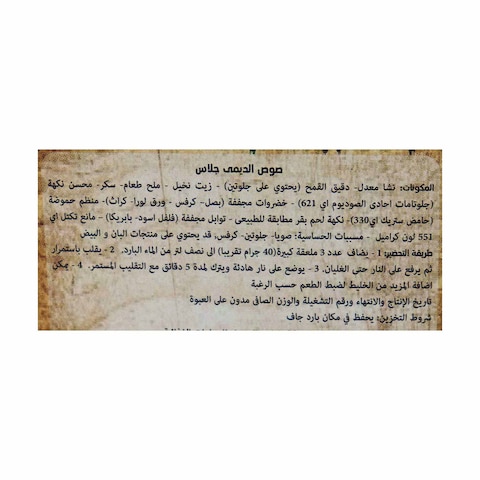 صوص الديمى جلاس
المكونات: نشا معدل- دقيق القمح (يحتوي على جلوتين) - زيت نخيل - ملح طعام- سكر- محسن نكهة
(جلوتامات احادى الصوديوم اي 621) - خضروات مجففة (بصل- كرفس - ورق لورا- كرات)- منظم حموضة
(حامض ستريك اي330)- نكهة لحم بقر مطابقة للطبيعى - توابل مجففة (فلفل اسود- بابريكا) - مانع تكتل اي
551 لون كراميل - مسببات الحساسية: صويا- جلوتين- كرفس, قد يحتوي على منتجات البان و البيض
طريقة التحضير: 1 - يضاف عدد 3 ملعقة كبيرة(40 جرام تقريبا) الى نصف لتر من الماء البارد. 2 - يقلب باستمرار
ثم يرفع على النار حتى الغليان. 3 - يوضع على نار هادئة ويترك لمدة 5 دقائق مع التقليب المستمر. 4 - يمكن
اضافة المزيد من الخليط لضبط الطعم حسب الرغبة
تاريخ الإنتاج والانتهاء ورقم التشغيلة والوزن الصافى مدون على العبوة
شروط التخزين: يحفظ في مكان بارد جاف